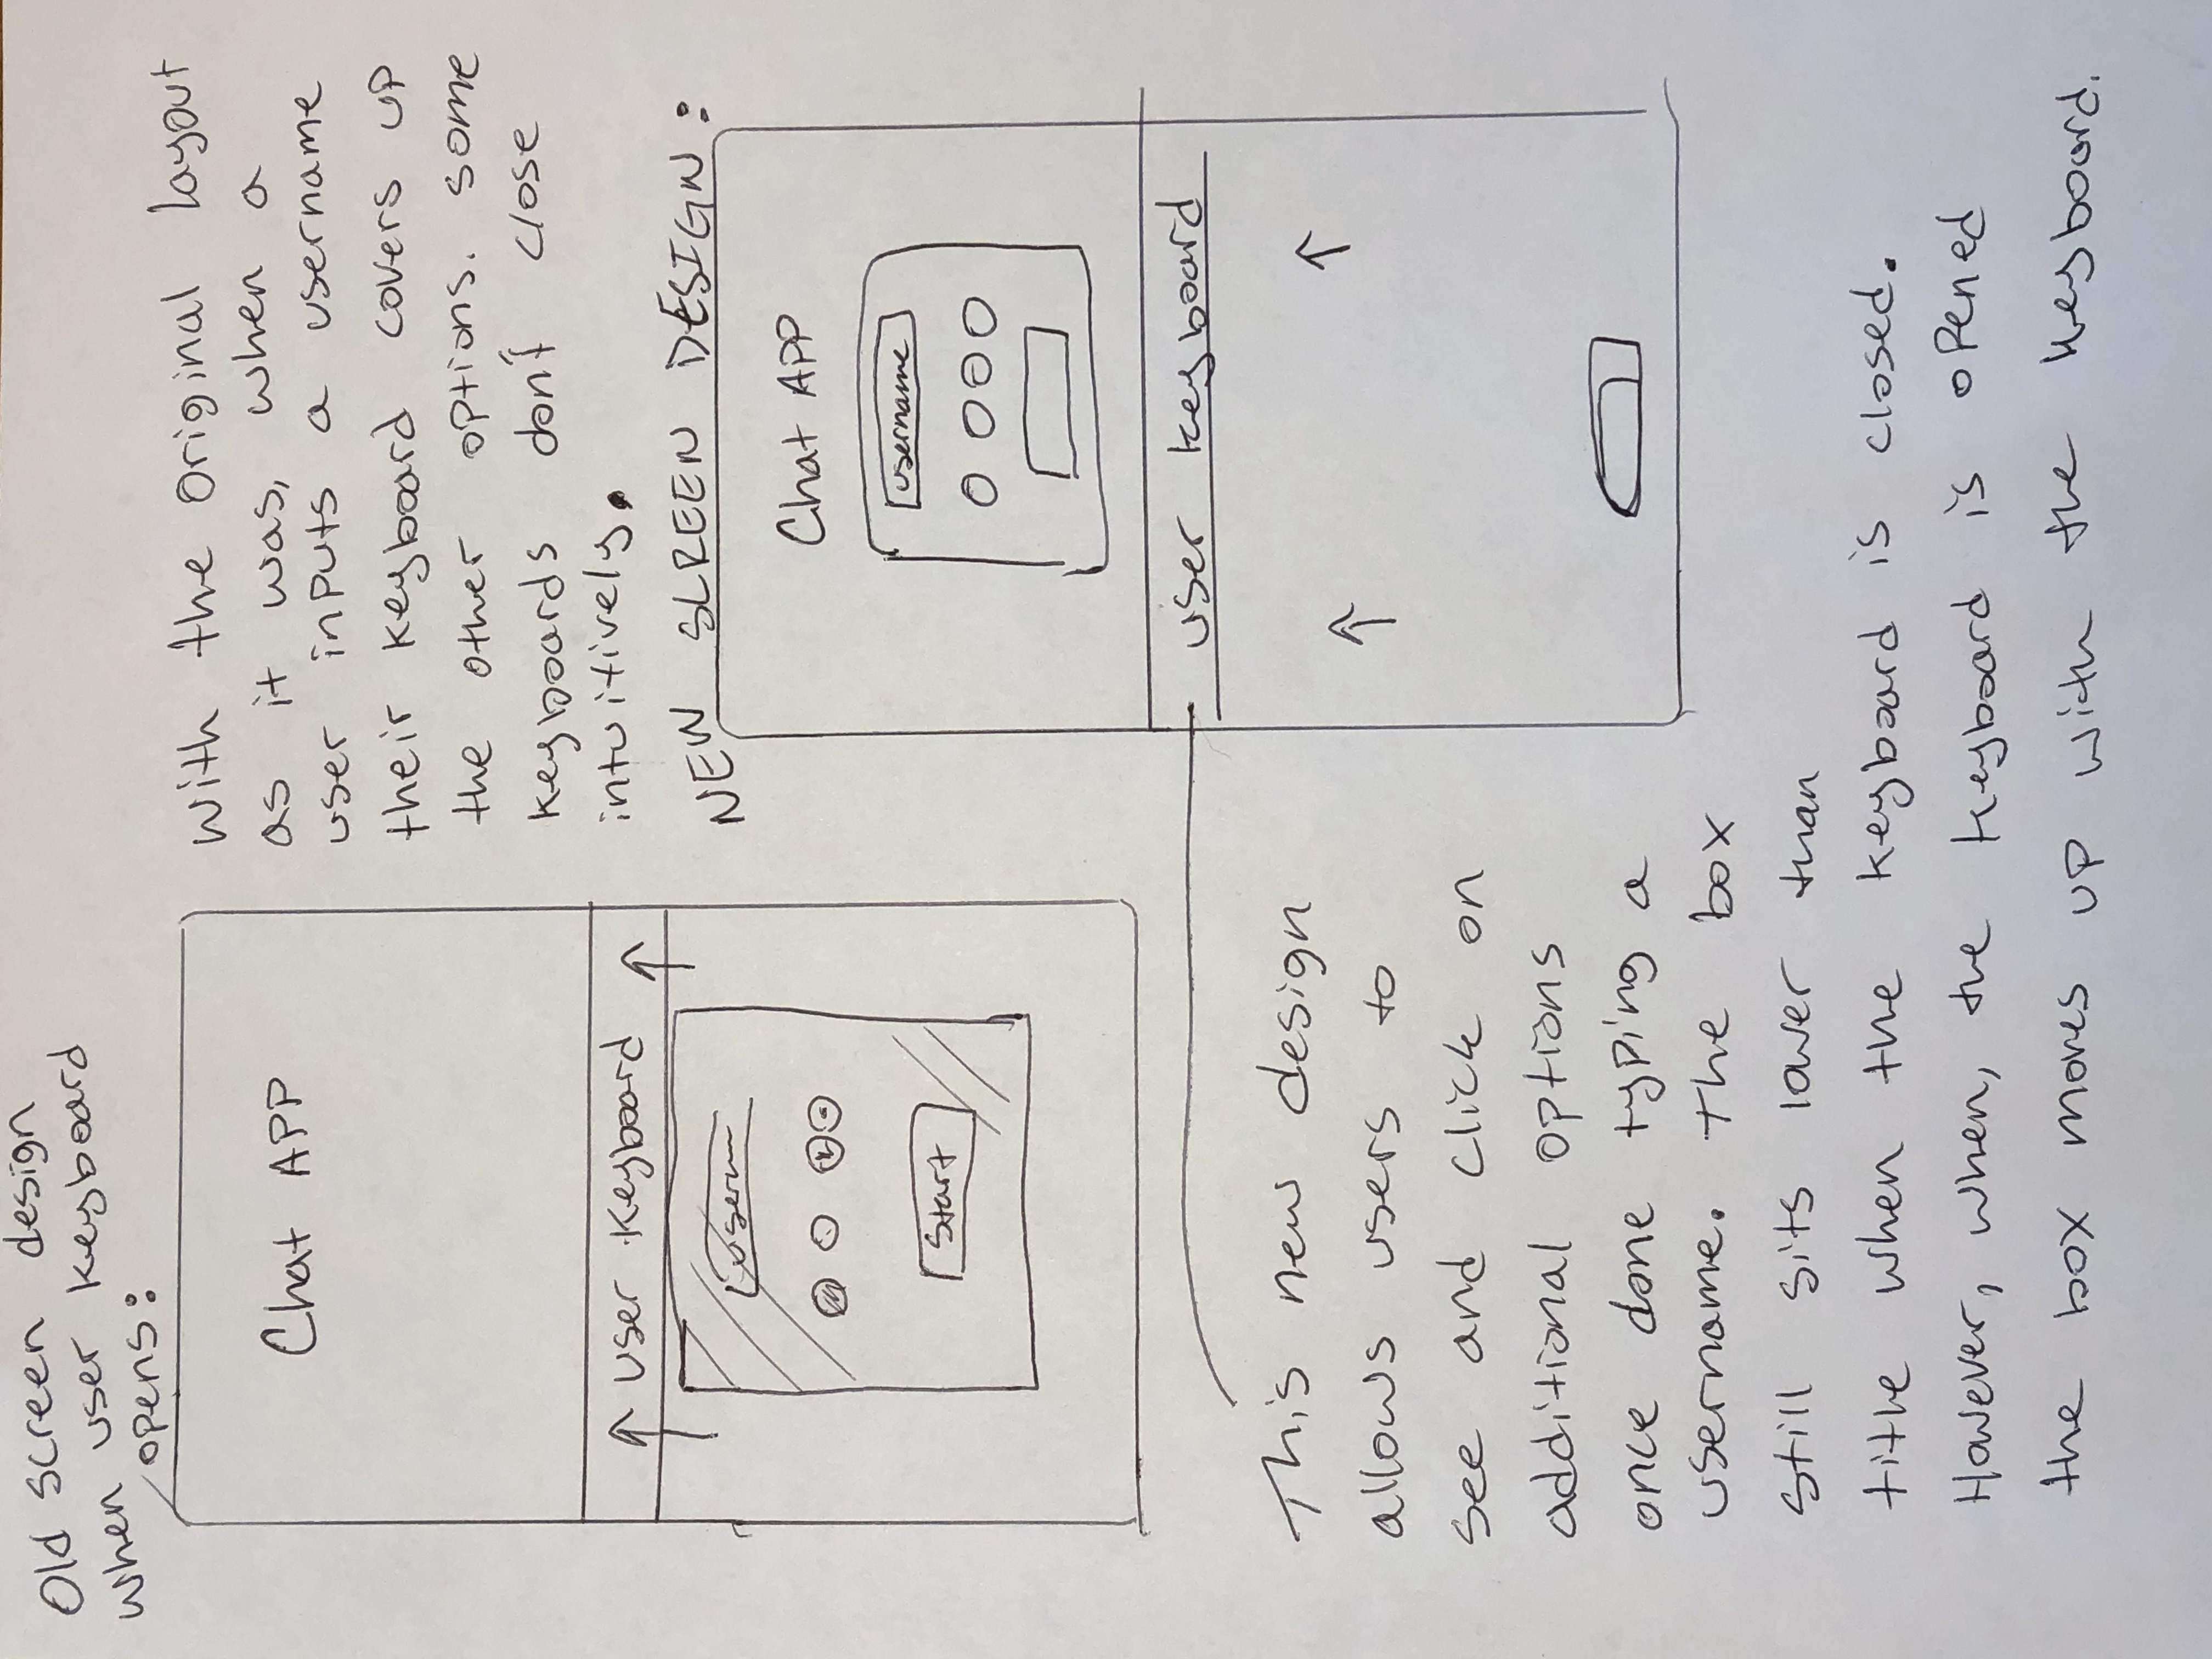 Old screen design
when user keyboard
opens:
Chat APP
User Keyboard
Start
With the original layout
as it was, when a
user inputs a username
their keyboard covers up
the other options. some
keyboards don't close
intuitively.
NEW SCREEN DESIGN:
Chat APP
username
user keyboard
This new design
allows users to
see and click on
additional options
once done typing a
username. the box
still sits lower than
title when the keyboard is closed.
However, when, the keyboard is opened
the box moves up with the keyboard.